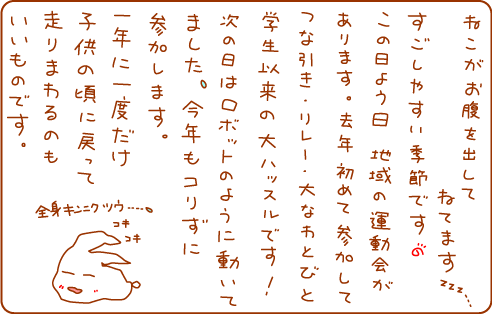 ねこがお腹を出して
ねてます
zzz...
すごしやすい季節です
この日よう日 地域の運動会が
あります。去年初めて参加して
つな引き・リレー・大なわとびと
学生以来の大ハッスルです!
次の日はロボットのように動いて
ました。今年もコリずに
参加します。
一年に一度だけ
子供の頃に戻って
走りまわるのも
いいものです。
全身キンニクツウ.....。
コキ
コキ